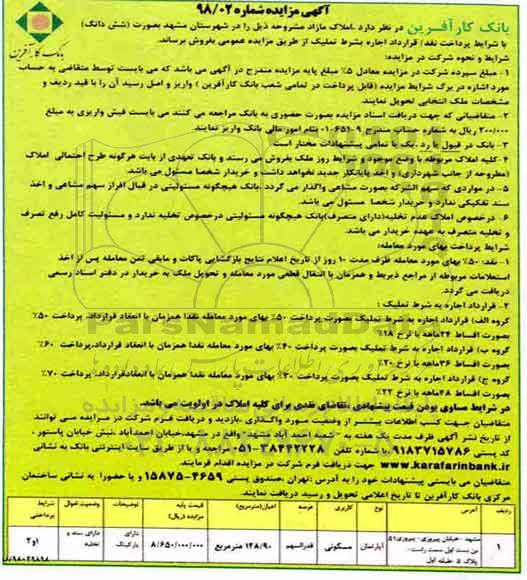 آگهی مزایده شماره ۹۸/۰۲
بانک کارآفرین در نظر دارد .املاک مازاد مشروحه ذیل را در شهرستان مشهد بصورت (شش دانگ)
با شرایط پرداخت نقد/ قرارداد اجاره بشرط تملیک از طریق مزایده عمومی بفروش برساند.
بانک کارآفرین
شرایط و نحوه شرکت در مزایده:
۱- مبلغ سپرده شرکت در مزایده معادل ۵% مبلغ پایه مزایده مندرج در آگهی می باشد که می بایست توسط متقاضی به حساب
مورد اشاره در برگ شرایط مزایده (قابل پرداخت در تمامی شعب بانک کارآفرین ) واریز و اصل رسید آن را با قید ردیف و
مشخصات ملک انتخابی تحویل نمایند.
۲- متقاضیانی که جهت دریافت اسناد مزایده بصورت حضوری به بانک مراجعه می کنند می بایست فیش واریزی به مبلغ
۲۰۰/۰۰۰ ریال به شماره حساب مندرج بنام امور مالی بانک واریز نمایند.
۳- بانک در قبول یا رد ،یک یا تمامی پیشنهادات مختار است
۴-کلیه املاک مربوطه با وضع موجود و شرایط روز ملک بفروش می رسند و بانک تعهدی از بابت هرگونه طرح احتمالی املاک
(مطروحه از جانب شهرداری) و اخذ پایانکار جدید نخواهد داشت و خریدار شخصا مسئول می باشد.
۵- در مواردی که سهم الشرکه بصورت مشاعی واگذار می گردد .بانک هیچگونه مسئولیتی در قبال افراز سهم مشاعی و اخذ
سند تفکیکی ندارد و خریدار شخصا مسئول می باشد.
۶- درخصوص املاک عدم تخلیه(دارای متصرف)بانک هیچگونه مسئولیتی درخصوص تخلیه ندارد و مسئولیت کامل رفع تصرف
و تخلیه متصرف به عهده خریدار می باشد.
شرایط پرداخت بهای مورد معامله:
۱- نقد: ۵۰% بهای مورد معامله ظرف مدت ۱۰ روز از تاریخ اعلام نتایج بازگشایی پاکات و مابقی ثمن معامله پس از اخذ
استعلامات مربوطه از مراجع ذیربط و همزمان با انتقال قطعی مورد معامله و تحویل ملک به خریدار در دفتر اسناد رسمی
دریافت می گردد.
۲- قرارداد اجاره به شرط تملیک :
گروه الف) قرارداد اجاره به شرط تملیک بصورت پرداخت ۵۰% بهای مورد معامله نقدا همزمان با انعقاد قرارداد، پرداخت ۵۰%
بصورت اقساط ۲۴ماهه با نرخ ۱۸%
گروه ب) قرارداد اجاره به شرط تملیک بصورت پرداخت ۴۰% بهای مورد معامله نقدا همزمان با انعقاد قرارداد،پرداخت ۶۰%
بصورت اقساط ۳۶ماهه با نرخ ۲۰%
گروه ج) قرارداد اجاره به شرط تملیک بصورت پرداخت ۳۰% بهای مورد معامله نقدا همزمان با انعقادقرارداد، پرداخت ۷۰%
بصورت اقساط ۴۸ ماهه با نرخ ۲۲%
در شرایط مساوی بودن قیمت پیشنهادی تقاضای نقدی برای کلیه املاک در اولویت می باشد.
متقاضیان جهت کسب اطلاعات بیشتر از وضعیت مورد واگذاری ،بازدید و دریافت فرم شرکت در مزایده می توانند
از تاریخ نشر آگهی ظرف مدت یک هفته به شعبه احمدآباد مشهد واقع در مشهد،خیابان احمدآباد ،نبش خیابان پاستور ،
کد پستی ۹۱۸۳۷۱۵۷۸۶ شماره تلفن ۳۸۴۴۲۲۲۸-۰۵۱ مراجعه و یا از طریق سایت اینترنتی بانک به نشانی
www.karafarinbank.ir جهت دریافت فرم شرکت در مزایده اقدام فرمایند.
متقاضیان می بایستی پیشنهادات خود را به آدرس :تهران ،صندوق پستی ۴۶۵۹-۱۵۸۷۵ و یا حضورا به نشانی ساختمان
مرکزی بانک کارآفرین تا تاریخ اعلامی تحویل و رسید دریافت نمایند.
ردیف آدرس نوع کاربری عرصه اعیان(مترمربع) قیمت پایه مزایده (ریال) توضیحات وضعیت اموال شرایط پرداختی
۱ مشهد -خیابان پیروزی- پیروزی۵۱ بن بست اول سمت راست- پلاک ۵ طبقه اول آپارتمان مسکونی قدرالسهم ۱۴۸/۹۰ مترمربع ۸/۶۵۰/۰۰۰/۰۰۰ دارای پارکینگ دارای سند و تخلیه ۱و۲
ParsNamadData